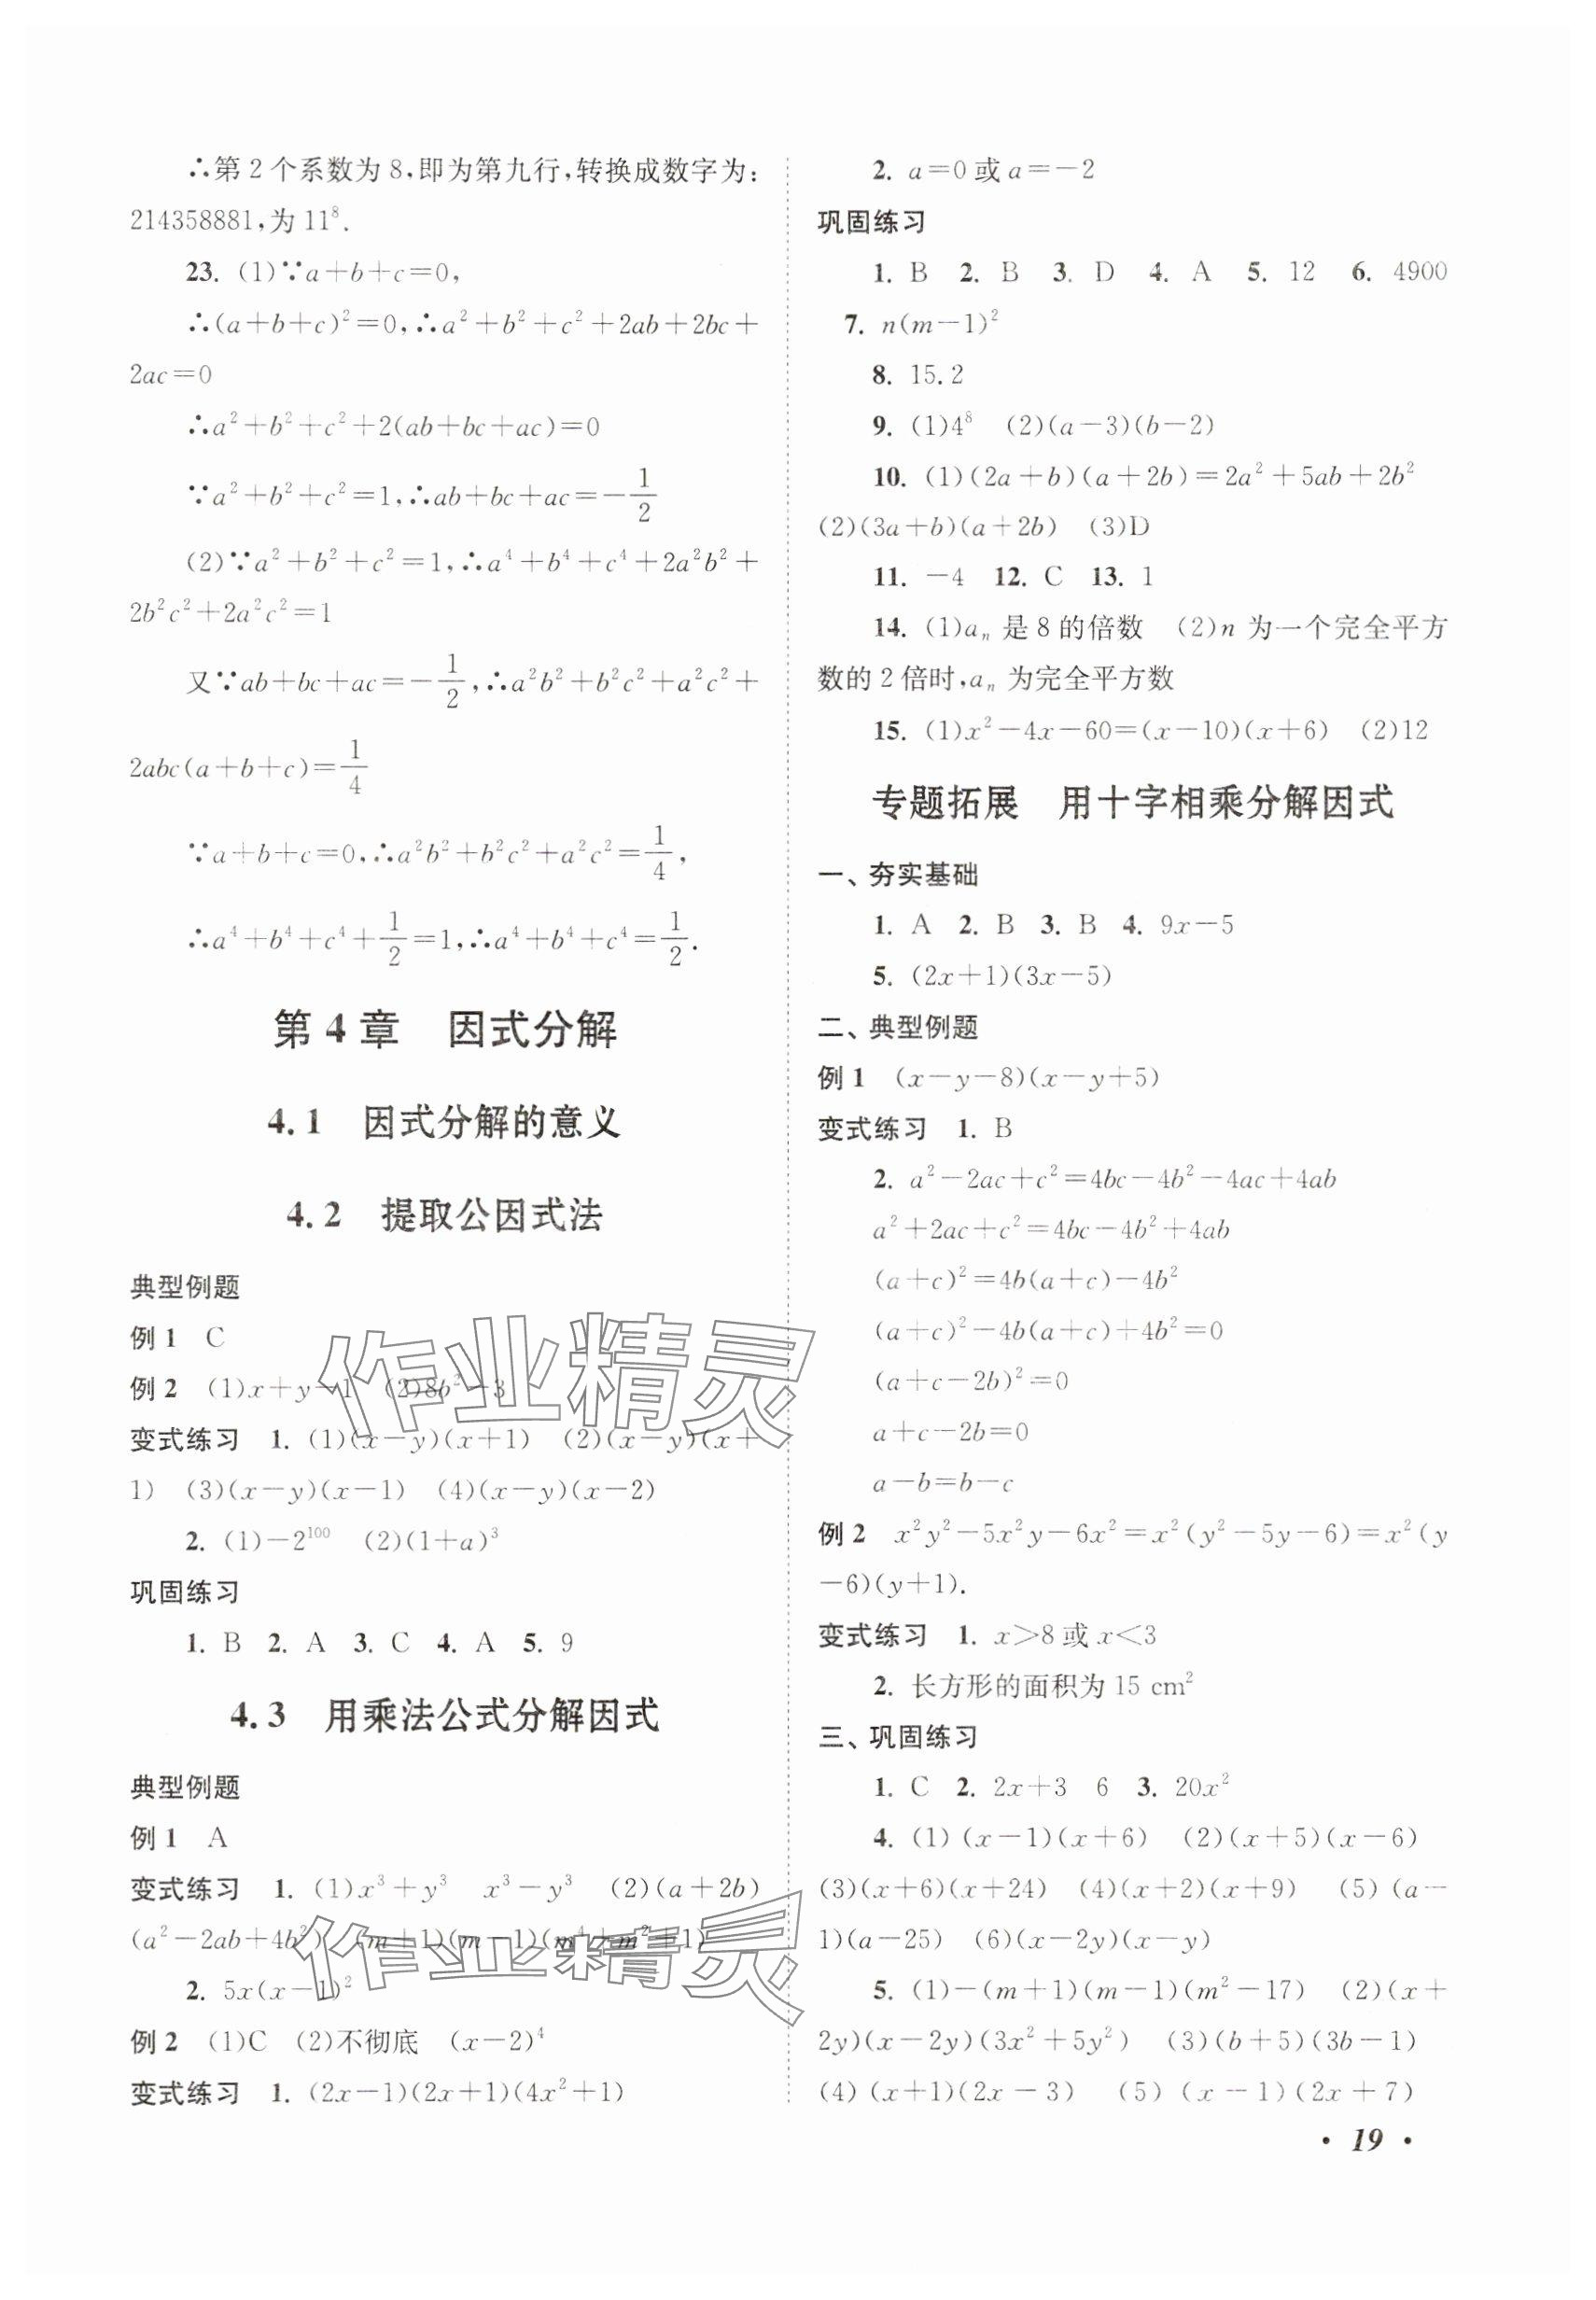 ∴第 2 个系数为 8,即为第九行,转换成数字为:
214358881,为 11⁸.
23. (1)∵a+b+c=0,
∴(a+b+c)²=0,∴a²+b²+c²+2ab+2bc+
2ac=0
∴a²+b²+c²+2(ab+bc+ac)=0
∵a²+b²+c²=1,∴ab+bc+ac=-1/2
(2)∵a²+b²+c²=1,∴a⁴+b⁴+c⁴+2a²b²+
2b²c²+2a²c²=1
又∵ab+bc+ac=-1/2,∴a²b²+b²c²+a²c²+
2abc(a+b+c)=1/4
∵a+b+c=0,∴a²b²+b²c²+a²c²=1/4,
∴a⁴+b⁴+c⁴+1/2=1,∴a⁴+b⁴+c⁴=1/2.
第 4 章 因式分解
4.1 因式分解的意义
4.2 提取公因式法
典型例题
例 1 C
例 2 (1)x+y-1 (2)8b²-3
变式练习 1. (1)(x-y)(x+1) (2)(x-y)(x+
1) (3)(x-y)(x-1) (4)(x-y)(x-2)
2. (1)-2¹⁰⁰ (2)(1+a)³
巩固练习
1. B 2. A 3. C 4. A 5. 9
4.3 用乘法公式分解因式
典型例题
例 1 A
变式练习 1. (1)x³+y³ x³-y³ (2)(a+2b)
(a²-2ab+4b²) (m+1)(m-1)(m⁴+m²+1)
2. 5x(x-1)²
例 2 (1)C (2)不彻底 (x-2)⁴
变式练习 1. (2x-1)(2x+1)(4x²+1)
2. a=0 或 a=-2
巩固练习
1. B 2. B 3. D 4. A 5. 12 6. 4900
7. n(m-1)²
8. 15.2
9. (1)4⁸ (2)(a-3)(b-2)
10. (1)(2a+b)(a+2b)=2a²+5ab+2b²
(2)(3a+b)(a+2b) (3)D
11. -4 12. C 13. 1
14. (1)aₙ 是 8 的倍数 (2)n 为一个完全平方
数的 2 倍时,aₙ 为完全平方数
15. (1)x²-4x-60=(x-10)(x+6) (2)12
专题拓展 用十字相乘分解因式
一、夯实基础
1. A 2. B 3. B 4. 9x-5
5. (2x+1)(3x-5)
二、典型例题
例 1 (x-y-8)(x-y+5)
变式练习 1. B
2. a²-2ac+c²=4bc-4b²-4ac+4ab
a²+2ac+c²=4bc-4b²+4ab
(a+c)²=4b(a+c)-4b²
(a+c)²-4b(a+c)+4b²=0
(a+c-2b)²=0
a+c-2b=0
a-b=b-c
例 2 x²y²-5x²y-6x²=x²(y²-5y-6)=x²(y
-6)(y+1).
变式练习 1. x>8 或 x<3
2. 长方形的面积为 15 cm²
三、巩固练习
1. C 2. 2x+3 6 3. 20x²
4. (1) (x-1)(x+6) (2)(x+5)(x-6)
(3)(x+6)(x+24) (4)(x+2)(x+9) (5) (a-
1)(a-25) (6)(x-2y)(x-y)
5. (1)-(m+1)(m-1)(m²-17) (2)(x+
2y)(x-2y)(3x²+5y²) (3)(b+5)(3b-1)
(4) (x+1)(2x-3) (5) (x-1)(2x+7)
· 19 ·
作业精灵
作业精灵